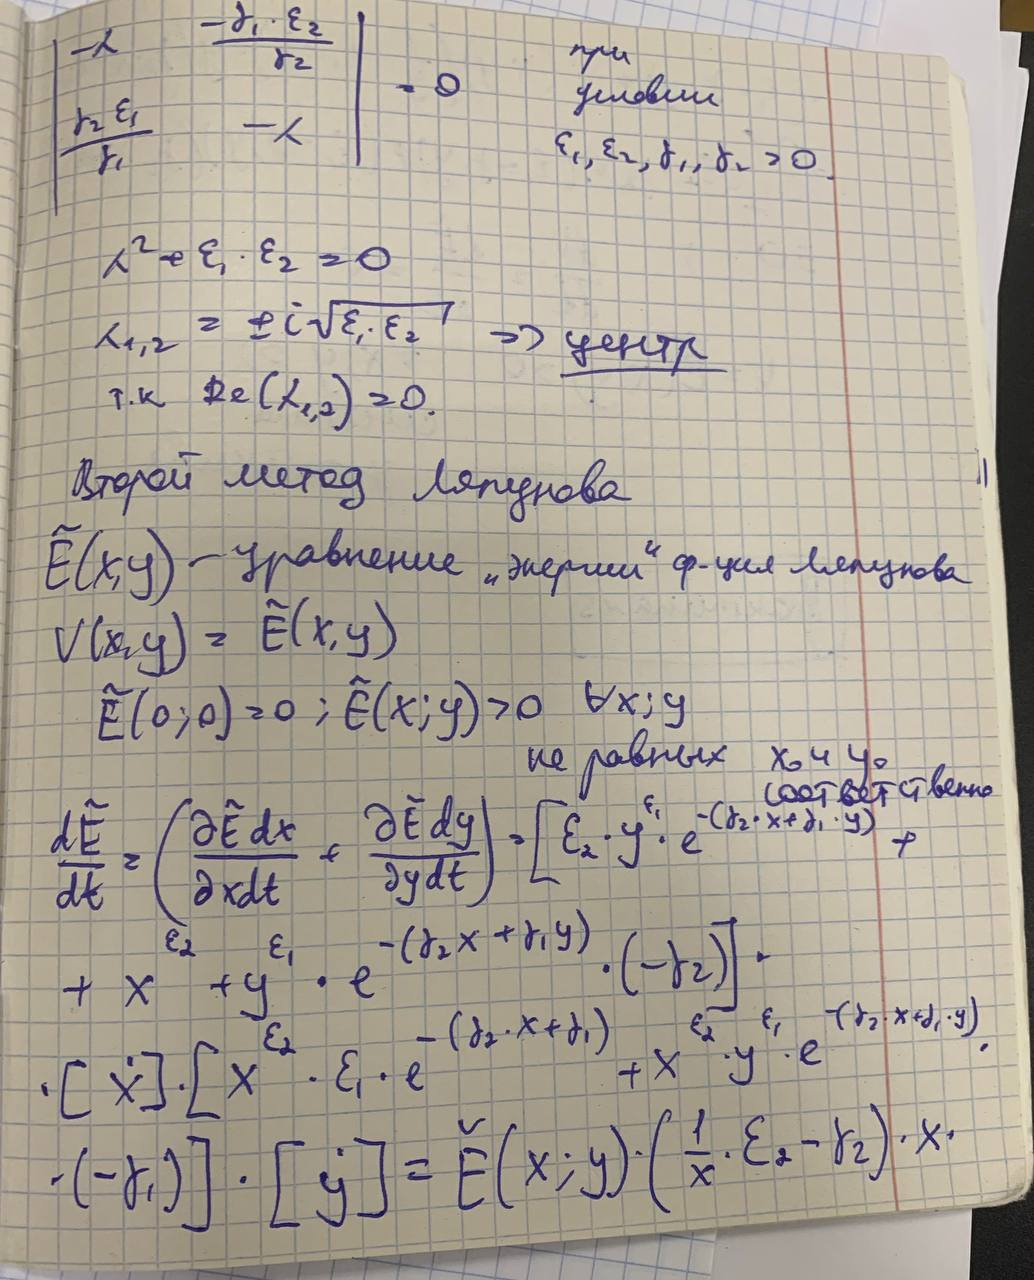 | -λ   -γ₁·ε₂/γ₂ |
| γ₂ε₁/γ₁   -λ | = 0
при
условии
ε₁, ε₂, γ₁, γ₂ > 0.
λ² + ε₁·ε₂ = 0
λ₁,₂ = ±i√(ε₁·ε₂) => центр
т.к Re(λ₁,₂) = 0.
Второй метод Ляпунова
Ẽ(x,y) – уравнение „энергии“ ф-ция Ляпунова
V(x,y) = Ẽ(x,y)
Ẽ(0;0)=0; Ẽ(x;y)>0 ∀x;y
не равных x₀ и y₀
соответственно
dẼ/dt = (∂Ẽdx/∂xdt + ∂Ẽdy/∂ydt) = [ε₂·y^ε₁·e^-(γ₂·x+γ₁·y) +
+ x^ε₂ + y^ε₁·e^-(γ₂x+γ₁y)·(-γ₂)]·
·[ẋ]·[x^ε₂·ε₁·e^-(γ₂·x+γ₁) + x^ε₂·y^ε₁·e^-(γ₂·x+γ₁·y)·
·(-γ₁)]·[ẏ] = Ẽ(x;y)·(1/x·ε₂-γ₂)·x·